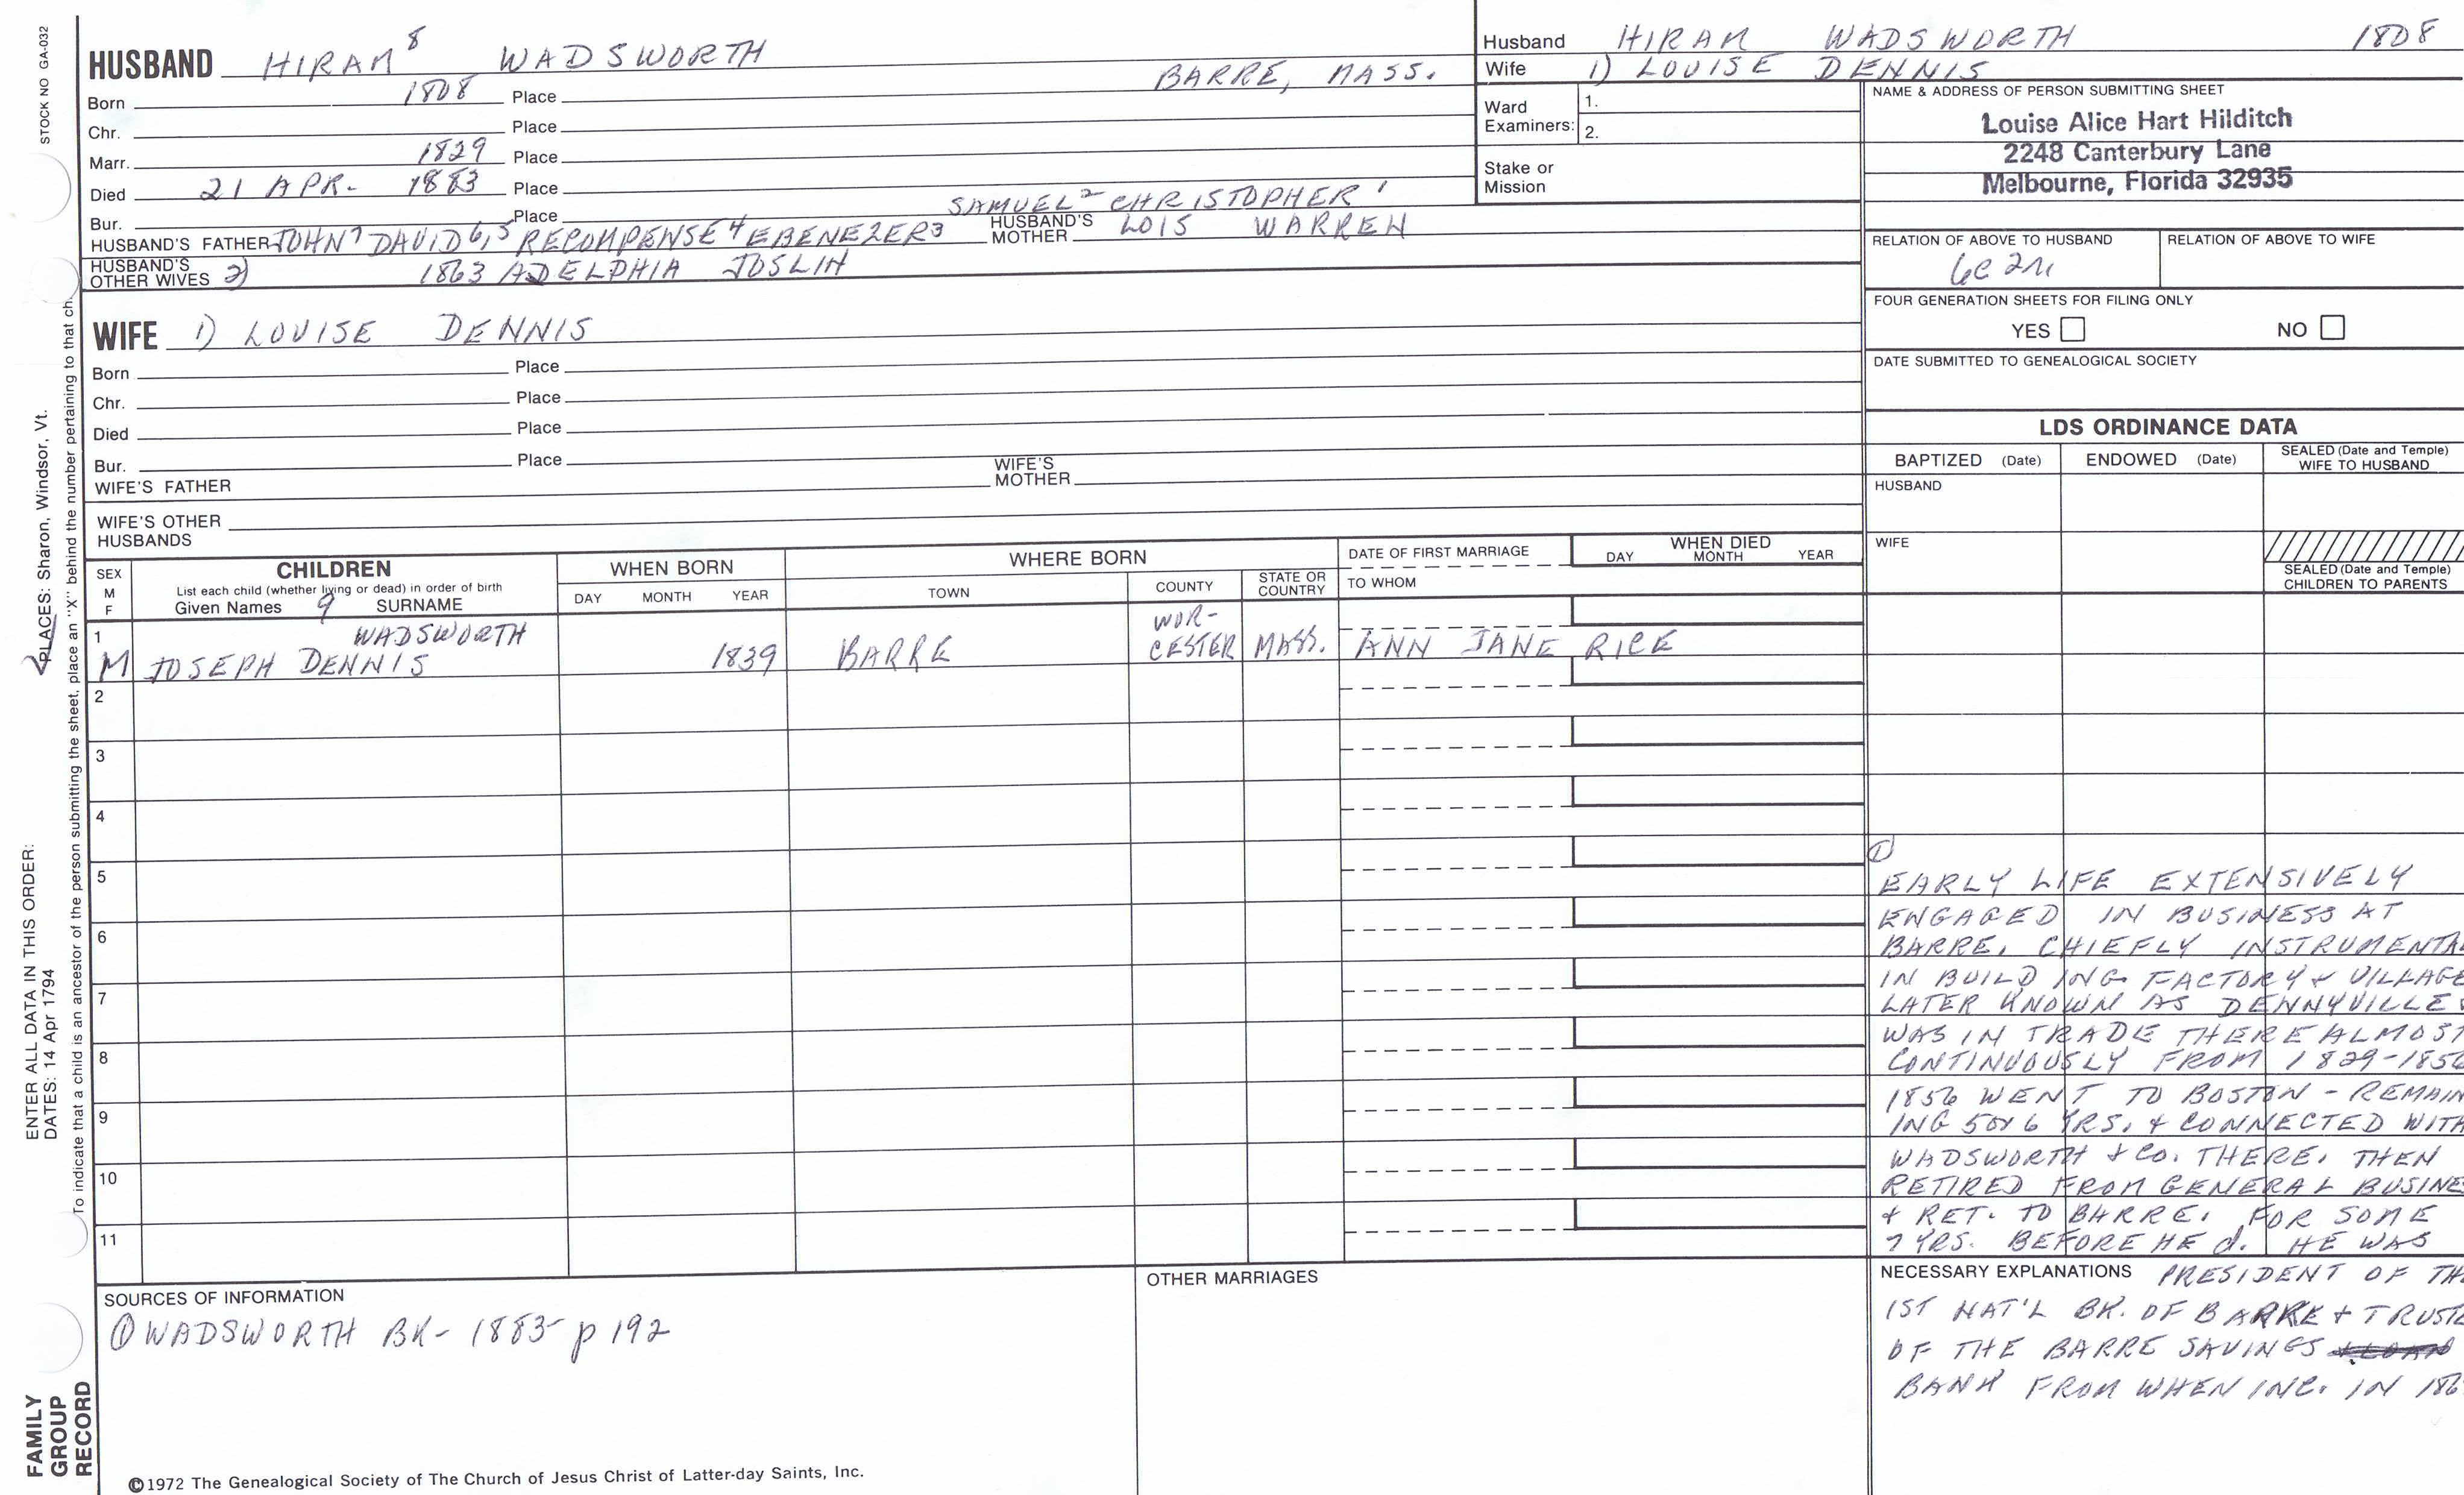 STOCK NO GA-032
HUSBAND HIRAM 8 WADSWORTH
Born 1808 Place BARRE, MASS.
Chr. Place
Marr. 1829 Place
Died 21 APR. 1883 Place
Bur. Place
SAMUEL 2 CHRISTOPHER 1
HUSBAND'S FATHER JOHN 7 DAVID 6,5 RECOMPENSE 4 EBENEZER 3 HUSBAND'S MOTHER LOIS WARREN
HUSBAND'S OTHER WIVES 2) 1863 ADELPHIA JOSLIN
WIFE 1) LOUISE DENNIS
Born Place
Chr. Place
Died Place
Bur. Place
WIFE'S FATHER WIFE'S MOTHER
WIFE'S OTHER HUSBANDS
Husband HIRAM WADSWORTH 1808
Wife 1) LOUISE DENNIS
Ward Examiners: 1.
2.
Stake or Mission
NAME & ADDRESS OF PERSON SUBMITTING SHEET
Louise Alice Hart Hilditch
2248 Canterbury Lane
Melbourne, Florida 32935
RELATION OF ABOVE TO HUSBAND RELATION OF ABOVE TO WIFE
6C 2R
FOUR GENERATION SHEETS FOR FILING ONLY
YES NO
DATE SUBMITTED TO GENEALOGICAL SOCIETY
LDS ORDINANCE DATA
BAPTIZED (Date) ENDOWED (Date) SEALED (Date and Temple) WIFE TO HUSBAND
HUSBAND
WIFE
SEALED (Date and Temple) CHILDREN TO PARENTS
SEX M F
CHILDREN
List each child (whether living or dead) in order of birth
Given Names 9 SURNAME
WHEN BORN
DAY MONTH YEAR
WHERE BORN
TOWN COUNTY STATE OR COUNTRY
DATE OF FIRST MARRIAGE
TO WHOM
WHEN DIED
DAY MONTH YEAR
1 WADSWORTH WOR-
M JOSEPH DENNIS 1839 BARRE CESTER MASS. ANN JANE RICE
2
3
4
5
6
7
8
9
10
11
①
EARLY LIFE EXTENSIVELY
ENGAGED IN BUSINESS AT
BARRE, CHIEFLY INSTRUMENTAL
IN BUILDING FACTORY & VILLAGE
LATER KNOWN AS DENNYVILLE &
WAS IN TRADE THERE ALMOST
CONTINUOUSLY FROM 1829-1856
1856 WENT TO BOSTON - REMAIN
ING 5 or 6 YRS. & CONNECTED WITH
WADSWORTH & CO. THERE. THEN
RETIRED FROM GENERAL BUSINE
& RET. TO BARRE. FOR SOME
7 YRS. BEFORE HE d. HE WAS
NECESSARY EXPLANATIONS PRESIDENT OF TH
1ST NAT'L BK. OF BARRE & TRUSTE
OF THE BARRE SAVINGS & LOAN
BANK FROM WHEN INC. IN 186
SOURCES OF INFORMATION
① WADSWORTH BK- 1883- p 192
OTHER MARRIAGES
©1972 The Genealogical Society of The Church of Jesus Christ of Latter-day Saints, Inc.
FAMILY
GROUP
RECORD
ENTER ALL DATA IN THIS ORDER:
DATES: 14 Apr 1794
PLACES: Sharon, Windsor, Vt.
To indicate that a child is an ancestor of the person submitting the sheet, place an "X" behind the number pertaining to that ch.